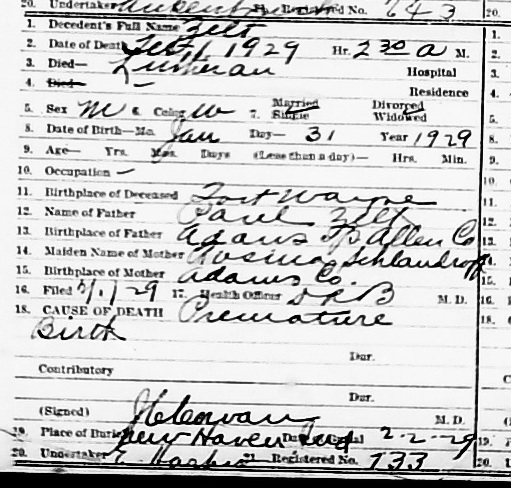 20. Undertaker Registered No. 243 20.
1. Decedent's Full Name Zelt 1.
2. Date of Death Feb, 1, 1929 Hr. 2 30 a M. 2.
3. Died— Lutheran Hospital 3.
4. Died— — Residence 4.
5. Sex M 6. Color W 7. Married Single Divorced Widowed 5.
8. Date of Birth—Mo. Jan Day— 31 Year 1929 8.
9. Age— Yrs. Mos. Days (Less than a day)— Hrs. Min. 9.
10. Occupation — 10.
11. Birthplace of Deceased Fort Wayne 11.
12. Name of Father Paul Zelt 12.
13. Birthplace of Father Adams Tp Allen Co 13.
14. Maiden Name of Mother Rosina 14.
15. Birthplace of Mother Adams Co. 15.
16. Filed 2/1/29 17. Health Officer DRB M. D. 16.
18. CAUSE OF DEATH Premature 18.
Birth
Dur.
Contributory
Dur.
(Signed) M. D.
19. Place of Burial New Haven Ind Date of Burial 2-2-29 19.
20. Undertaker 21. Registered No. 133 20.